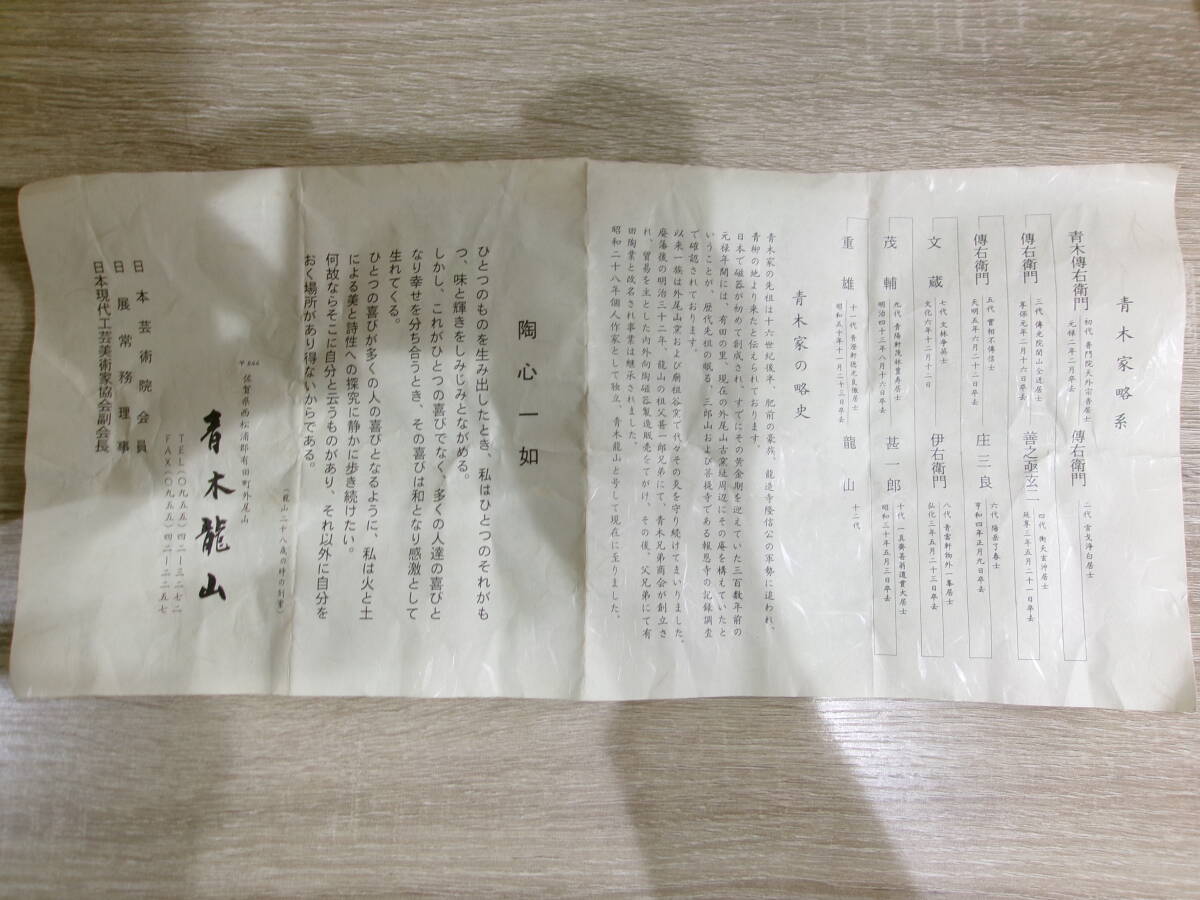 青木家略系
青木傳右衛門 初代 普門院天外宗吾居士 元禄二年二月卒去
傳右衛門 二代 玄戈浄白居士
傳右衛門 三代 傳光院関山全透居士 享保元年二月十六日卒去
善之亟玄二 四代 衝天玄沖居士 延享三年五月二十一日卒去
傳右衛門 五代 實相不傳信士 天明五年六月二十二日卒去
庄三良 六代 陽岳了春士 享和四年正月九日卒去
文蔵 七代 文林争英士 文化六年十二月十二日
伊右衛門 八代 青雲軒物外一峯居士 弘化三年五月二十三日卒去
茂輔 九代 青陽軒茂林豊寿居士 明治四十三年八月十六日卒去
甚一郎 十代 一真齊甚翁道實大居士 昭和三十年五月三日卒去
重雄 十一代 青原軒徳光良徹居士 昭和五十年十一月二十三日卒去
龍山 十二代
青木家の略史
青木家の先祖は十六世紀後半、肥前の豪族、龍造寺隆信公の軍勢に追われ、
青柳の地より来たと伝えられております。
日本で磁器が初めて創成され、すでにその黄金期を迎えていた三百数年前の
元禄年間には、有田の里、現在の外尾山古窯址周辺にその庵を構えていたと
いうことが、歴代先祖の眠る、三郎山および菩提寺である報恩寺の記録調査
で確認されております。
以来一族は外尾山窯および廟祖谷窯で代々その炎を守り続けてまいりました。
廃藩後の明治三十二年、龍山の祖父甚一郎兄弟にて、青木兄弟商会が創立さ
れ、貿易を主とした内外向陶磁器製造販売をてがけ、その後、父兄弟にて有
田陶業と改名され事業は継承されました。
昭和二十八年個人作家として独立、青木龍山と号して現在に至りました。
陶心一如
ひとつのものを生み出したとき、私はひとつのそれがも
つ、味と輝きをしみじみとながめる。
しかし、これがひとつの喜びでなく、多くの人達の喜びと
なり幸せを分ち合うとき、その喜びは和となり感激として
生れてくる。
ひとつの喜びが多くの人の喜びとなるように、私は火と土
による美と詩性への探究に静かに歩き続けたい。
何故ならそこに自分と云うものがあり、それ以外に自分を
おく場所があり得ないからである。
(龍山二十八歳の時の創書)
〒844 佐賀県西松浦郡有田町外尾山
青木龍山
TEL(〇九五五)四二ー三二七二
FAX(〇九五五)四二ー三二五七
日本芸術院会員
日展常務理事
日本現代工芸美術家協会副会長